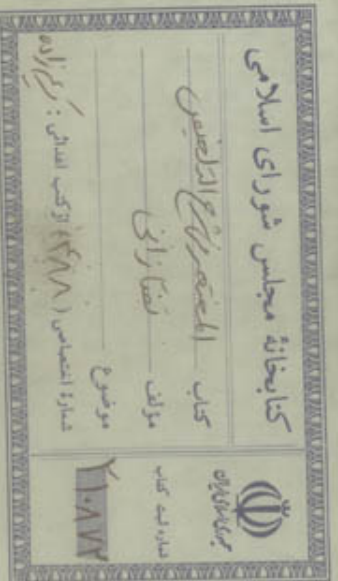 کتابخانهٔ مجلس شورای اسلامی
کتاب المختصر فی شرح التلخیص
مؤلف تفتازانی
موضوع
شمارهٔ اختصاصی ( ۳۸۸ ) از کتب اهدائی :
جمهوری اسلامی ایران
شماره ثبت کتاب